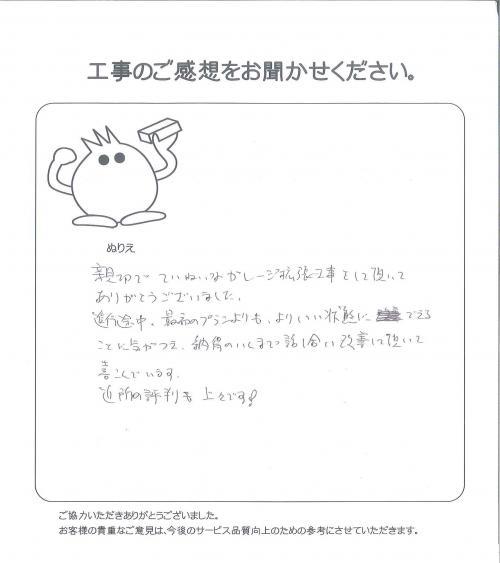 工事のご感想をお聞かせください。
ぬりえ
親切で ていねいなガレージ拡張工事をして頂いて
ありがとうございました。
進行途中、最初のプランよりも、よりいい状態に できる
ことに気がつき、納得のいくまで話し合い改善して頂いて
喜こんでいます。
近所の評判も上々です!
ご協力いただきありがとうございました。
お客様の貴重なご意見は、今後のサービス品質向上のための参考にさせていただきます。